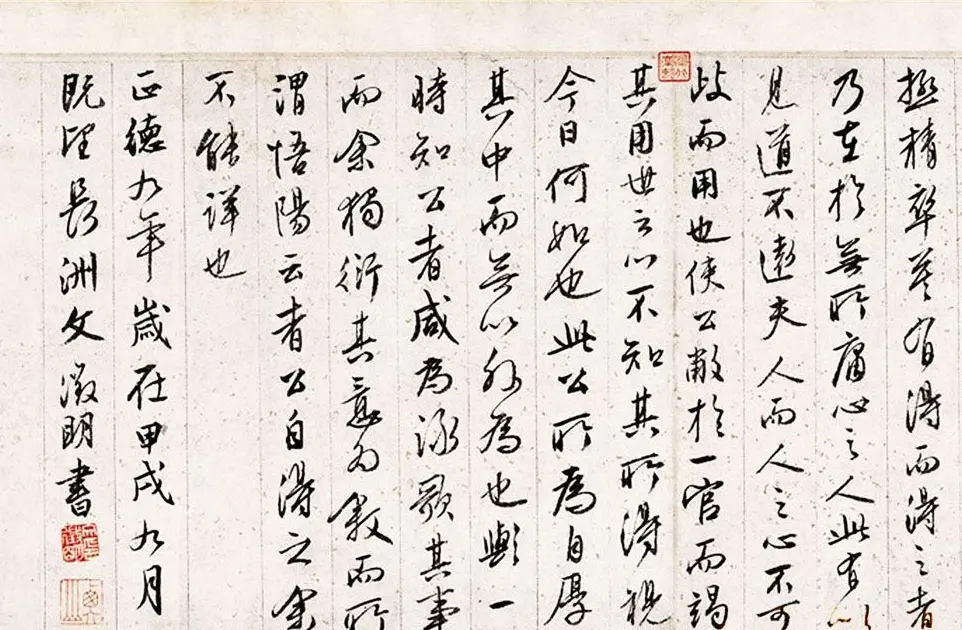 極精卒莫有得而得之者
乃在於無所庸心之人此有以
見道不遠夫人而人之心不可
歧而用也使公敝於一官而竭
其用世之心不知其所得視
今日何如也此公所為自厚
其中而無以外為也與一
時知公者咸為詠歌其事
而余獨衍其意為敘而所
謂悟陽云者公自得之余
不能詳也
正德九年歲在甲戌九月
既望長洲文徵明書